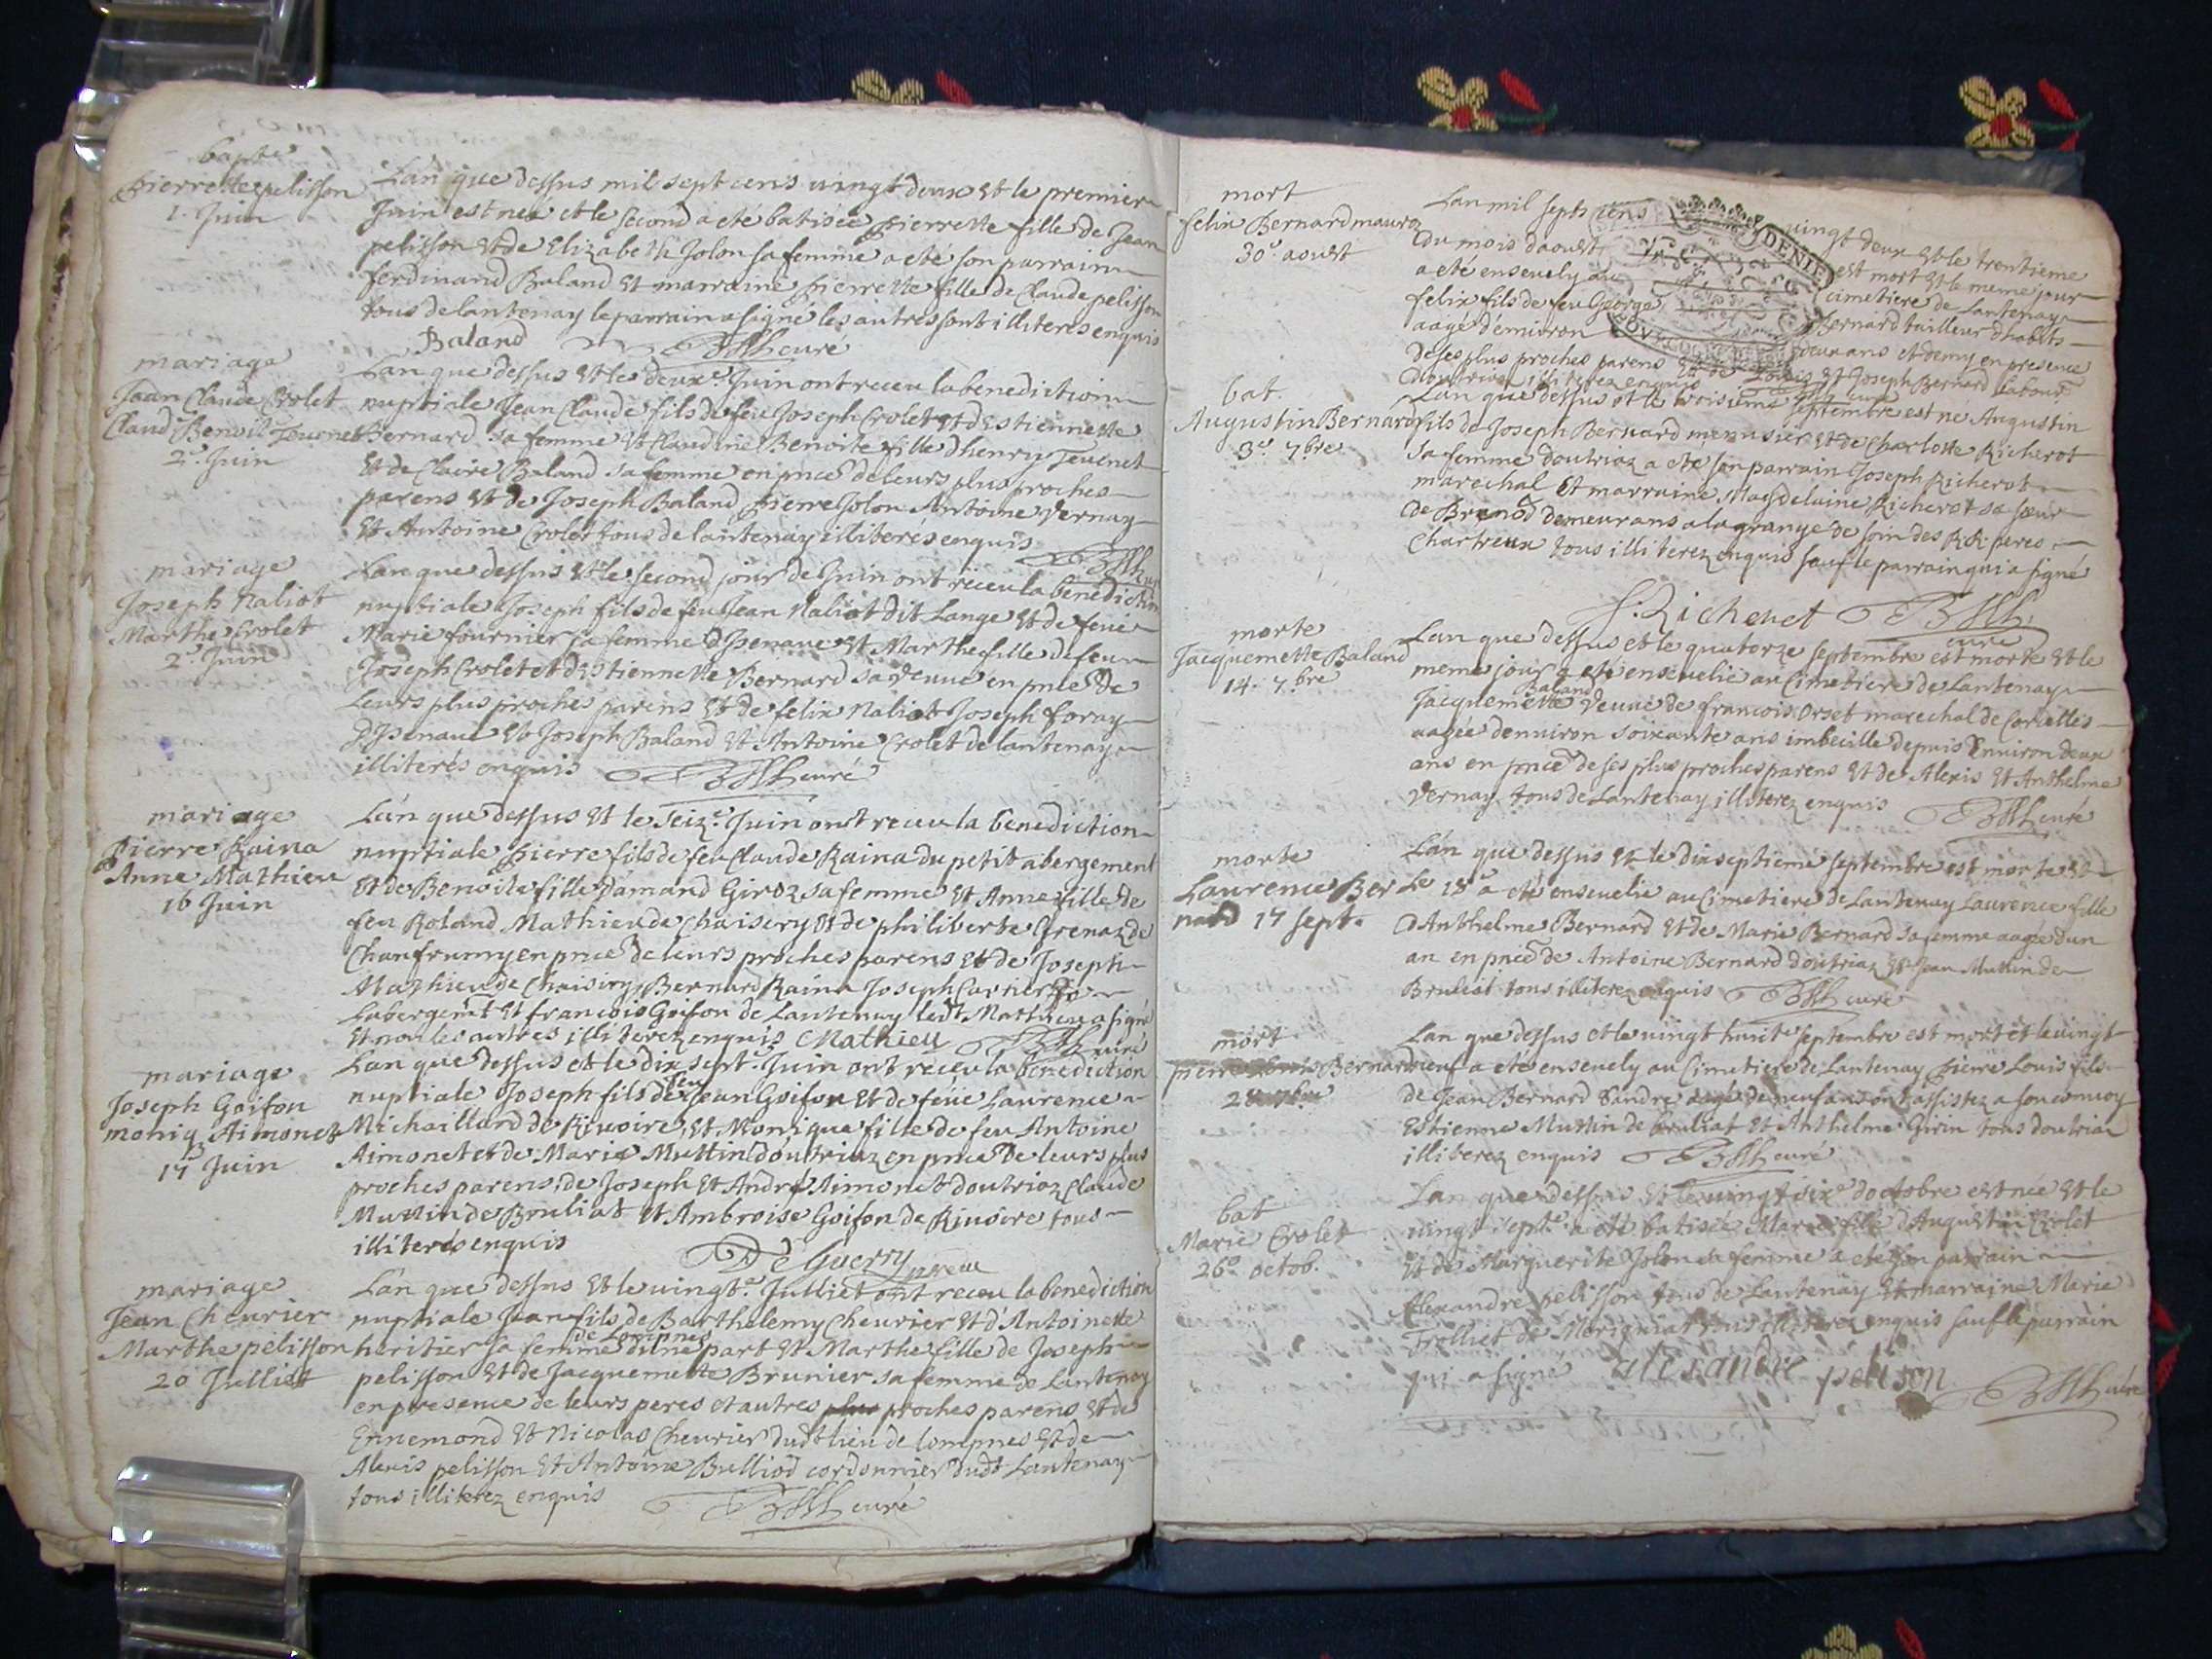 bapt.
pierrette pelisson
1. Juin
Lan que dessus mil sept cens vingt deux et le premier
Juin est neé et le second a eté batisée pierrette fille de Jean
pelisson et de Elizabeth Jolon sa femme a eté son parrain
ferdinand Baland et marraine pierrette fille de Claude pelisson
tous de lantenay le parrain a signé les autres sont illiterés enquis
Baland curé
mariage
Jean Claude Crolet
Claud. Benoit Teuenet
2e. Juin
Lan que dessus et le deuxe. Juin ont receu la benediction
nuptiale Jean Claude fils de feu Joseph Crolet et d'Estiennette
Bernard sa femme et Claudine Benoite fille dhenry Teuenet
et de Claire Baland sa femme en pnce de leurs plus proches
parens et de Joseph Baland pierre Jolon Antoine Vernay
et Antoine Crolet tous de lantenay illiterés enquis
mariage
Joseph Naliot
Marthe Crolet
2e. Juin
Lan que dessus et le second jour de Juin ont receu la benediction
nuptiale Joseph fils de feu Jean Naliot dit Lange et de feue
Marie fournier sa femme d'Isenaue et Marthe fille de feu
Joseph Crolet et d'Estiennette Bernard sa veuue en pnce de
leurs plus proches parens et de felix Naliot Joseph foray
D'Isenaue et Joseph Baland et Antoine Crolet de lantenay
illiterés enquis curé
mariage
Pierre Raina
Anne Mathieu
16 Juin
Lan que dessus et le seize. Juin ont receu la benediction
nuptiale pierre fils de feu Claude Raina du petit abergement
et de Benoite fille d'amand Giroz sa femme et Anne fille de
feu Roland Mathieu de Chaisery et de philiberte Grenaz de
Chanfromy en pnce de leurs proches parens et de Joseph
Mathieu de Chaisiry, Bernard Raina Joseph Carrier de
Labergemt et francois Goifon de Lantenay ledt Mathieu a signé
et non les autres illiterez enquis Mathieu curé
mariage
Joseph Goifon
moniq. Aimonet
17 Juin
Lan que dessus et le dix sept. Juin ont receu la benediction
nuptiale Joseph fils de feu Jean Goifon et de feüe Laurence
Michaillard de Riuoire, et Monique fille de feu Antoine
Aimonet et de Marie Muttin doutriaz en pnce de leurs plus
proches parens, de Joseph et André Aimonet doutriaz Claude
Muttin de Bruliat et Ambroise Goifon de Riuoire tous
illiterés enquis De Guerry
mariage
Jean Cheurier
Marthe pelisson
20 Julliet
Lan que dessus et le uingte. Julliet ont receu la benediction
nuptiale Jean fils de Barthelemy Cheurier et d'Antoinette
heritier sa femme de Lompnes d'une part et Marthe fille de Joseph
pelisson et de Jacquemette Brunier sa femme de Lantenay
en presence de leurs peres et autres plus proches parens et de
Ennemond et Nicolas Cheurier dudt lieu de lompnes et de
Alexis pelisson et Antoine Bulliod cordonnier dudt Lantenay
tous illiterez enquis curé
mort
felix Bernard
30e. aoust
Lan mil sept cens vingt deux et le trentieme
du mois daoust est mort et le meme jour
a eté enseuely au cimetiere de Lantenay
felix fils de feu George Bernard tailleur dhabits
aagé d'enuiron deux ans et demy en presence
de ses plus proches parens et de Louis et Joseph Bernard
doutriaz illiterez enquis curé
bat.
Augustin Bernard
3e. 7bre
Lan que dessus et le troisieme septembre est né Augustin
fils de Joseph Bernard menusier et de Charlotte Richerot
sa femme doutriaz a eté son parrain Joseph Richerot
marechal et marraine Magdelaine Richerot sa sœur
de Brenod demeurans a la grange de foin des RR peres
Chartreux tous illiterez enquis sauf le parrain qui a signé
J. Richenet curé
morte
Jacquemette Baland
14. 7bre
Lan que dessus et le quatorze septembre est morte et le
meme jour a eté enseuelie au Cimetiere de Lantenay
Jacquemette Baland veuue de francois Orset marechal de Corcelles
aagée denuiron soixante ans imbecille depuis Enuiron deux
ans en pnce de ses plus proches parens et de Alexis et Anthelme
Vernay tous de Lantenay illiterez enquis curé
morte
Laurence Ber
nard 17 sept.
Lan que dessus et le dix septieme septembre est morte et
Le 18e a eté enseuelie au Cimetiere de Lantenay Laurence fille
d'Anthelme Bernard et de Marie Bernard sa femme aagée dun
an en pnce de Antoine Bernard doutriaz et Jean Muttin de
Bruliat tous illiterez enquis curé
mort
pierre Louis Bernard
28 7bre
Lan que dessus et le uingt huite septembre est mort et le uingt
neuf a eté enseuely au Cimetiere de Lantenay pierre Louis fils
de Jean Bernard Landre aagé de neuf ans ont assistez a son conuoy
Estienne Muttin de bruliat et Anthelme Guin tous doutriaz
illiterez enquis curé
bat
Marie Crolet
26e octob.
Lan que dessus et le uingt sixe d'octobre est née et le
uingt septe a eté batisée Marie fille d'Augustin Crolet
et de Marguerite Jolon sa femme a eté son parrain
Alexandre pelisson tous de Lantenay et marraine Marie
Trolliet de Morigniat tous illiterez enquis sauf le parrain
qui a signé alexandre pelison curé